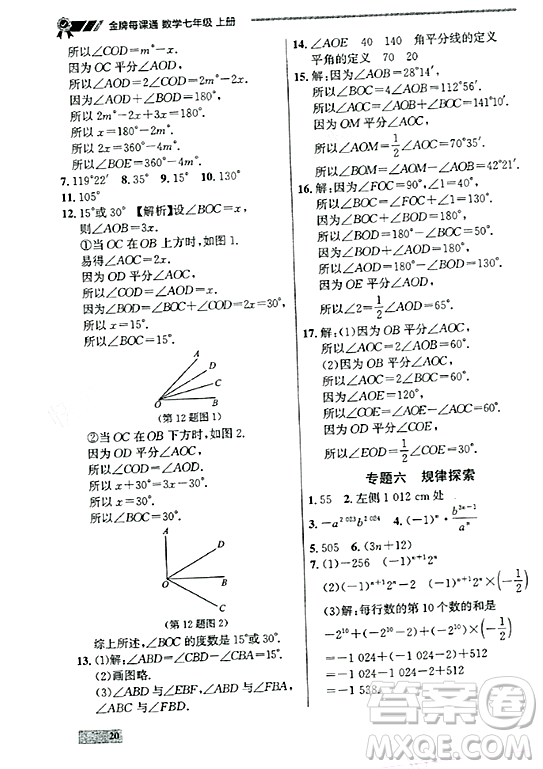 金牌每课通 数学七年级 上册
所以∠COD=m°-x.
因为 OC 平分∠AOD,
所以∠AOD=2m°-2x.
因为∠AOD+∠BOD=180°,
所以 2m°-2x+3x=180°.
所以 x=180°-2m°.
所以∠BOE=360°-4m°.
7. 119°22′ 8. 35° 9. 15° 10. 130°
11. 105°
12. 15°或 30° 【解析】设∠BOC=x,
则∠AOB=3x.
①当 OC 在 OB 上方时,如图 1.
易得∠AOC=2x.
因为 OD 平分∠AOC,
所以∠COD=x.
所以∠BOD=2x=30°.
所以 x=15°.
所以∠BOC=15°.
A
D
C
O
B
(第 12 题图 1)
②当 OC 在 OB 下方时,如图 2.
因为 OD 平分∠AOC,
所以∠COD=∠AOD.
所以 x+30°=3x-30°.
所以 x=30°.
所以∠BOC=30°.
A
D
O
B
C
(第 12 题图 2)
综上所述,∠BOC 的度数是 15°或 30°.
13. (1)解:∠ABD=∠CBD=∠ABC.
(2)画图略.
(3)∠ABD+∠DBF+∠CBF=180°.
20
14. ∠AOE 40 140 角平分线的定义
平角的定义 70 20
15. 解:因为∠AOB=28°14′,
所以∠BOC=4∠AOB=112°56′.
所以∠AOC=∠BOC+∠AOB=141°10′.
因为 OM 平分∠AOC,
所以∠AOM=1/2∠AOC=70°35′.
所以∠BOM=∠AOM-∠AOB=42°21′.
16. 解:因为∠FOC=90°,∠1=40°,
所以∠BOC=∠FOC+∠1=130°.
因为∠AOD=180°-∠AOC,
∠BOC=180°-∠AOC,
所以∠AOD=∠BOC=130°.
因为 OE 平分∠AOD,
所以∠2=1/2∠AOD=65°.
17. 解:(1)因为 OB 平分∠AOC,
所以∠AOB=∠BOC=30°.
(2)因为 OB 平分∠AOC,
所以∠AOC=2∠BOC=60°.
所以∠COE=∠AOE-∠AOC=80°.
因为 OD 平分∠COE,
所以∠EOD=1/2∠COE=40°.
专题六 规律探索
1. 55 2. 左侧 1 012 cm 处
3. -a^{2 023}b^{2 024} 4. (-1)^n·b^{3n-1}/a^n
5. 505 6. (3n+12)
7. (1)-256 (-1)^{n+1}2^n
(2)(-1)^n+(-1)^{n+1}2^n (-1)^{n+1}2^n×(-1/2)
(3)解:每行数的第 10 个数的和是
-2^{10}+(-2^{10}+2)+(-2^{10})×(-1/2)
=-1 024-1 024+2+512
=-1 534.